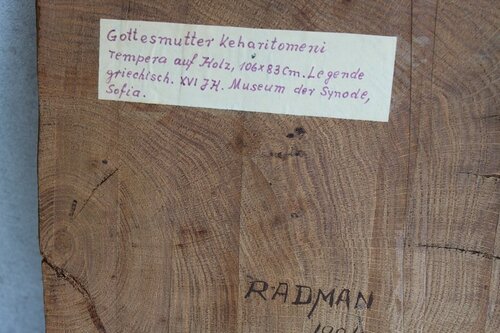 Gottesmutter Keharitomeni
Tempera auf Holz, 106x83 Cm. Legende
griechisch. XVI JH. Museum der Synode,
Sofia.
RADMAN